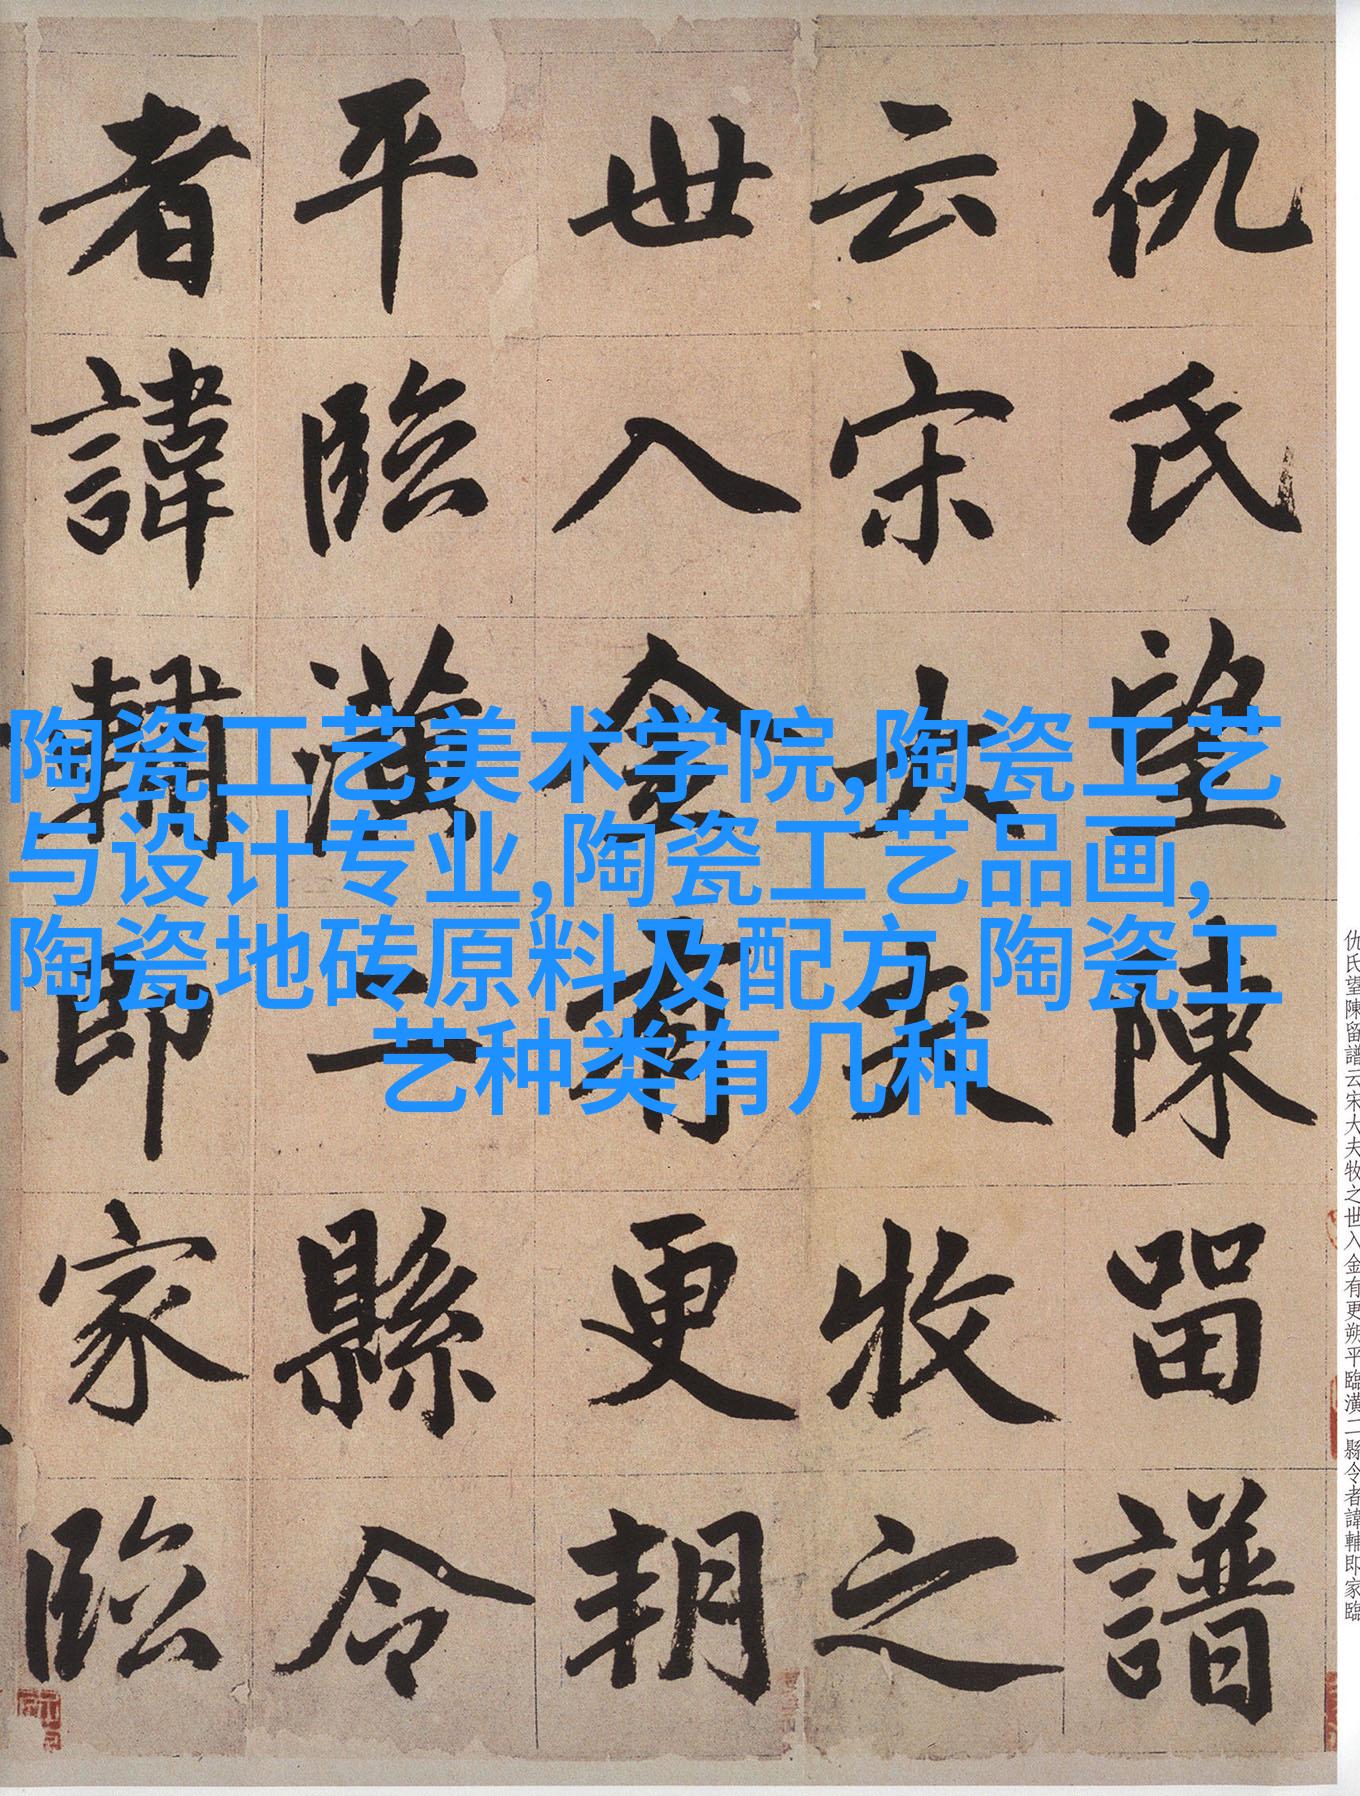 仇氏望陳留譜
云宋大夫牧之
世入金有更朔
平臨潢二縣令
者諱輔即家臨
陶瓷工艺美术学院,陶瓷工艺
与设计专业,陶瓷工艺品画,
陶瓷地砖原料及配方,陶瓷工
艺种类有几种
仇氏望陳留譜云宋大夫牧之世入金有更朔平臨潢二縣令者諱輔即家臨